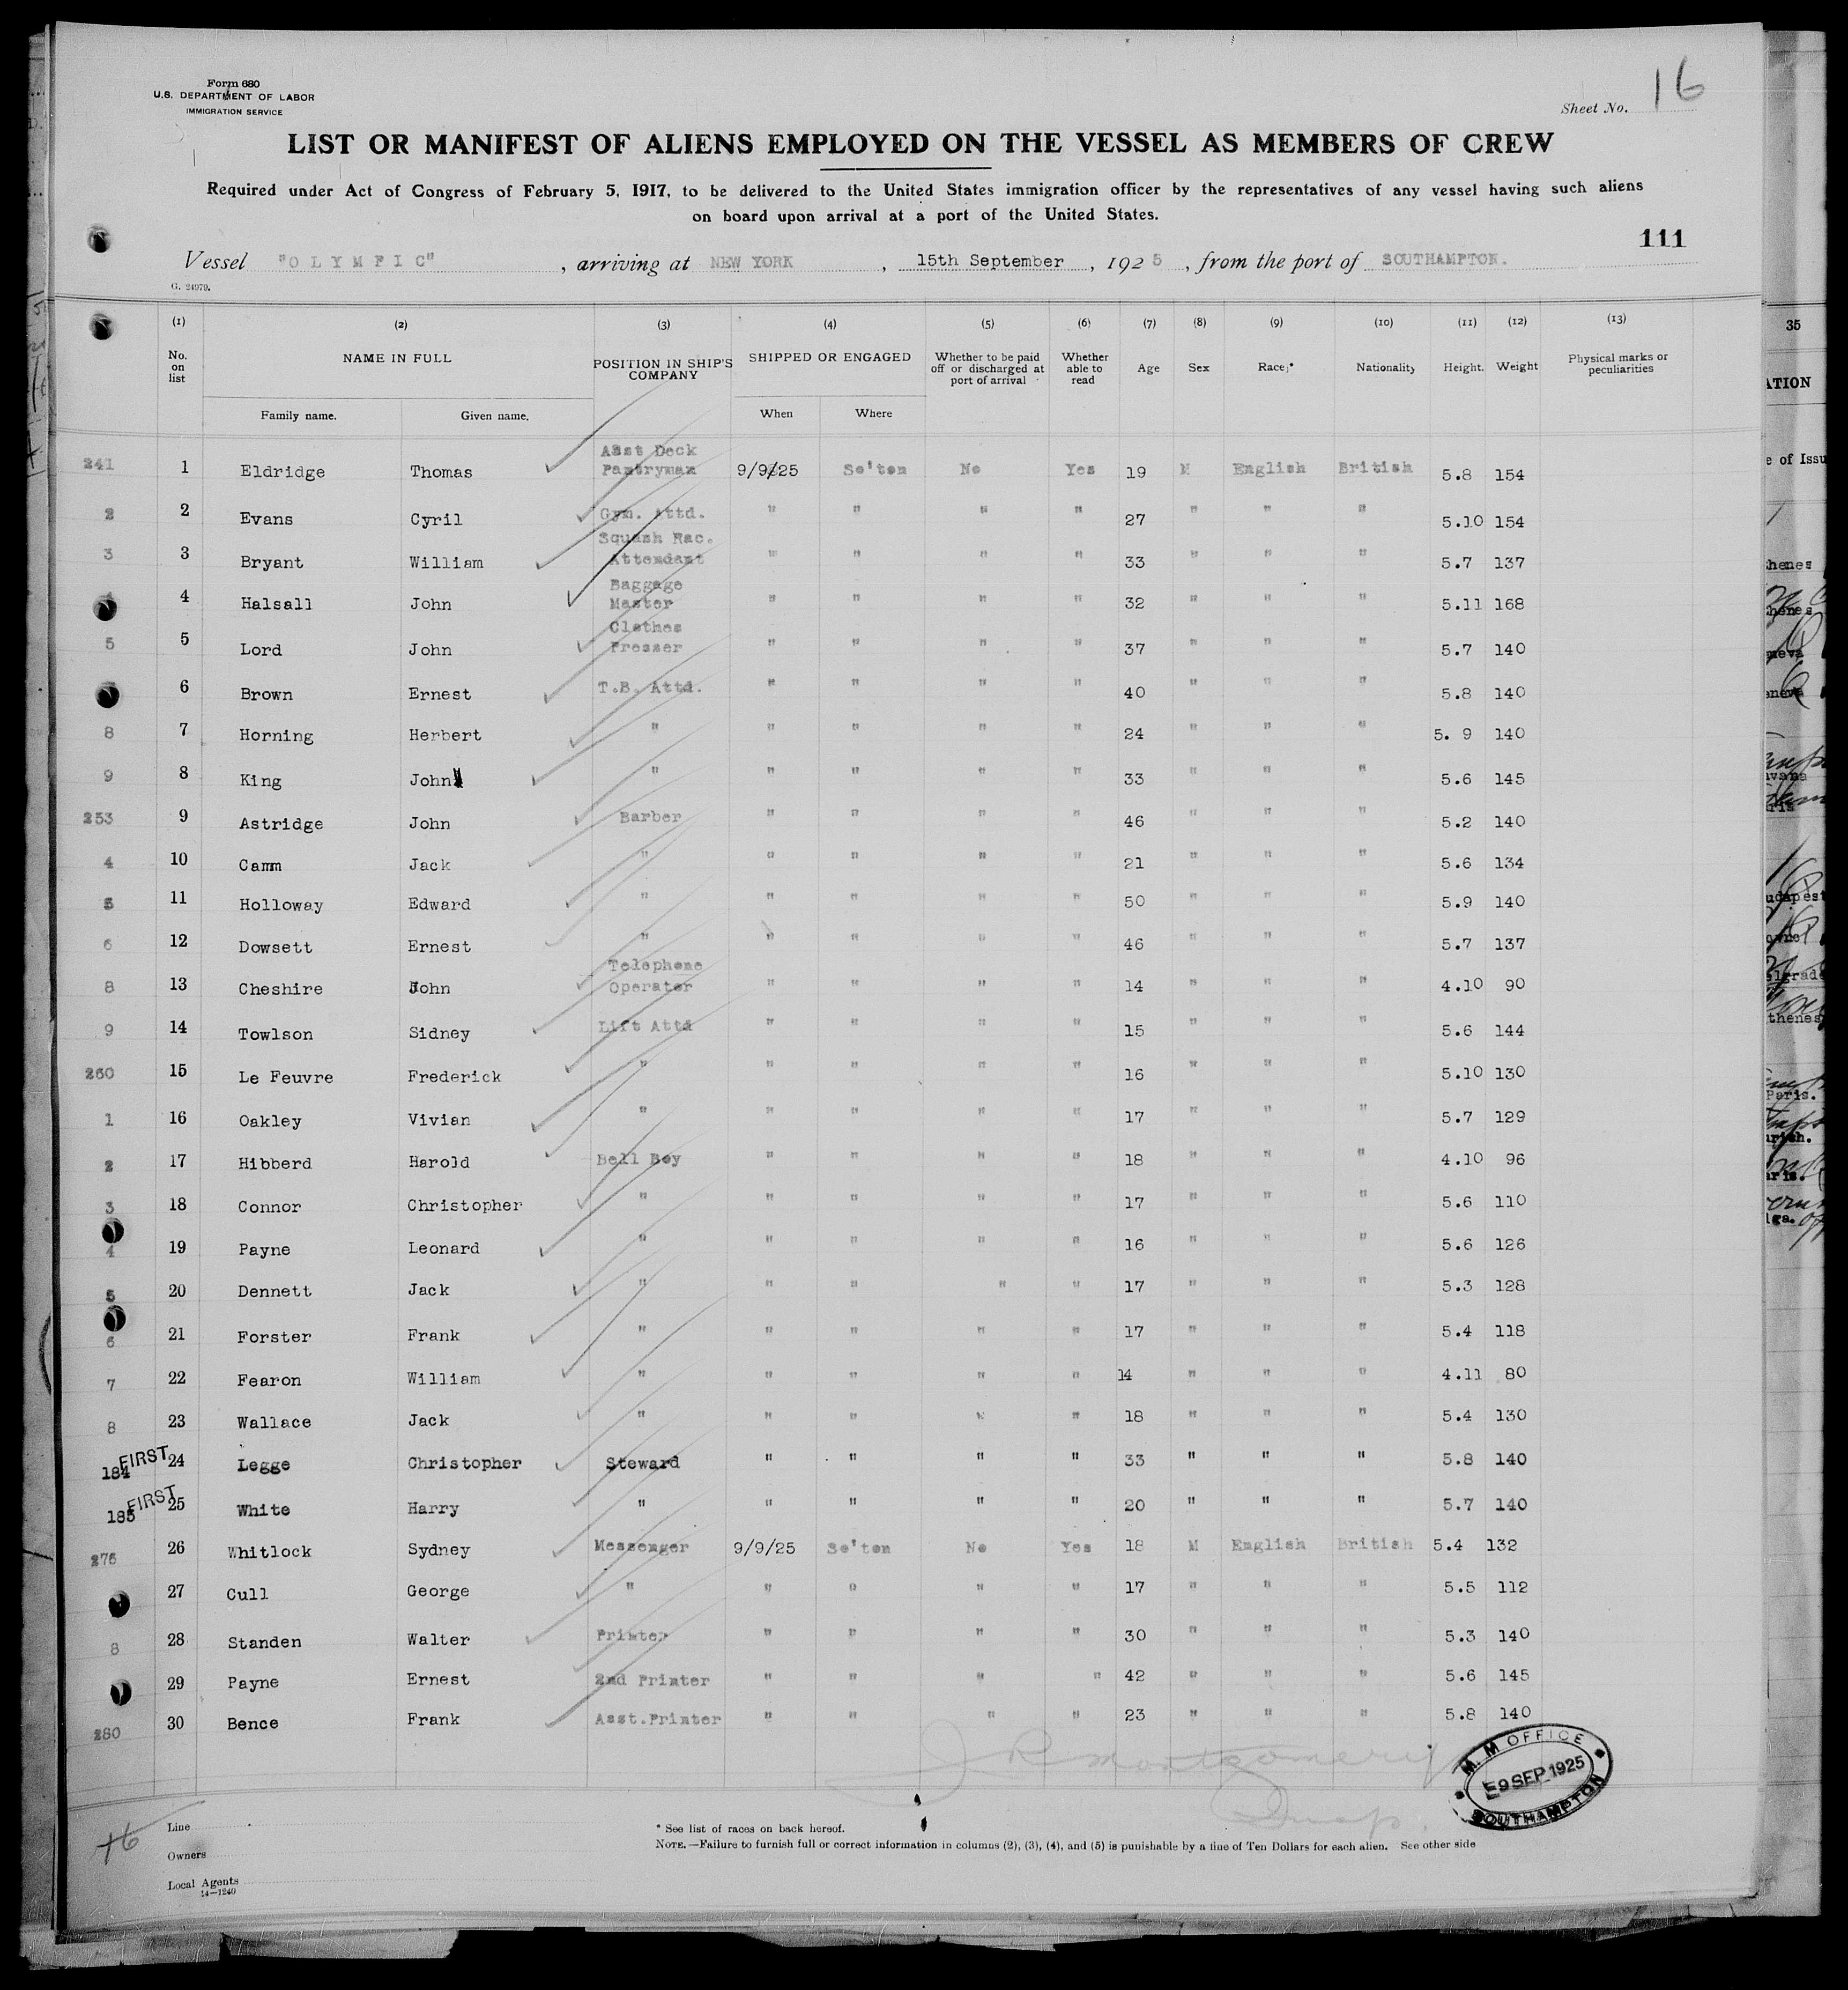 Form 680
U.S. DEPARTMENT OF LABOR
IMMIGRATION SERVICE
Sheet No. 16
LIST OR MANIFEST OF ALIENS EMPLOYED ON THE VESSEL AS MEMBERS OF CREW
Required under Act of Congress of February 5, 1917, to be delivered to the United States immigration officer by the representatives of any vessel having such aliens
on board upon arrival at a port of the United States.
111
Vessel "OLYMPIC", arriving at NEW YORK, 15th September, 1925, from the port of SOUTHAMPTON.
G. 24979.
(1) (2) (3) (4) (5) (6) (7) (8) (9) (10) (11) (12) (13)
No. on list NAME IN FULL POSITION IN SHIP'S COMPANY SHIPPED OR ENGAGED Whether to be paid off or discharged at port of arrival Whether able to read Age Sex Race* Nationality Height. Weight Physical marks or peculiarities
Family name. Given name. When Where
241 1 Eldridge Thomas Asst Deck Pantryman 9/9/25 So'ton No Yes 19 M English British 5.8 154
2 2 Evans Cyril Gym. Attd. " " " " 27 " " " 5.10 154
3 3 Bryant William Squash Rac. Attendant " " " " 33 " " " 5.7 137
4 Halsall John Baggage Master " " " " 32 " " " 5.11 168
5 5 Lord John Clothes Presser " " " " 37 " " " 5.7 140
6 Brown Ernest T.B. Attd. " " " " 40 " " " 5.8 140
8 7 Horning Herbert " " " " " 24 " " " 5. 9 140
9 8 King John " " " " " 33 " " " 5.6 145
253 9 Astridge John Barber " " " " 46 " " " 5.2 140
4 10 Camm Jack " " " " " 21 " " " 5.6 134
5 11 Holloway Edward " " " " " 50 " " " 5.9 140
6 12 Dowsett Ernest " " " " " 46 " " " 5.7 137
8 13 Cheshire John Telephone Operator " " " " 14 " " " 4.10 90
9 14 Towlson Sidney Lift Attd " " " " 15 " " " 5.6 144
260 15 Le Feuvre Frederick " " " " " 16 " " " 5.10 130
1 16 Oakley Vivian " " " " " 17 " " " 5.7 129
2 17 Hibberd Harold Bell Boy " " " " 18 " " " 4.10 96
3 18 Connor Christopher " " " " " 17 " " " 5.6 110
4 19 Payne Leonard " " " " " 16 " " " 5.6 126
5 20 Dennett Jack " " " " " 17 " " " 5.3 128
6 21 Forster Frank " " " " " 17 " " " 5.4 118
7 22 Fearon William " " " " " 14 " " " 4.11 80
8 23 Wallace Jack " " " " " 18 " " " 5.4 130
184 FIRST 24 Legge Christopher Steward " " " " 33 " " " 5.8 140
185 FIRST 25 White Harry " " " " " 20 " " " 5.7 140
276 26 Whitlock Sydney Messenger 9/9/25 So'ton No Yes 18 M English British 5.4 132
27 Cull George " " " " " 17 " " " 5.5 112
8 28 Standen Walter Printer " " " " 30 " " " 5.3 140
29 Payne Ernest 2nd Printer " " " " 42 " " " 5.6 145
280 30 Bence Frank Asst.Printer " " " " 23 " " " 5.8 140
J R Montgomery
M.M OFFICE
9 SEP 1925
SOUTHAMPTON
Line
Owners
Local Agents
14—1240
* See list of races on back hereof.
NOTE.—Failure to furnish full or correct information in columns (2), (3), (4), and (5) is punishable by a fine of Ten Dollars for each alien. See other side
35